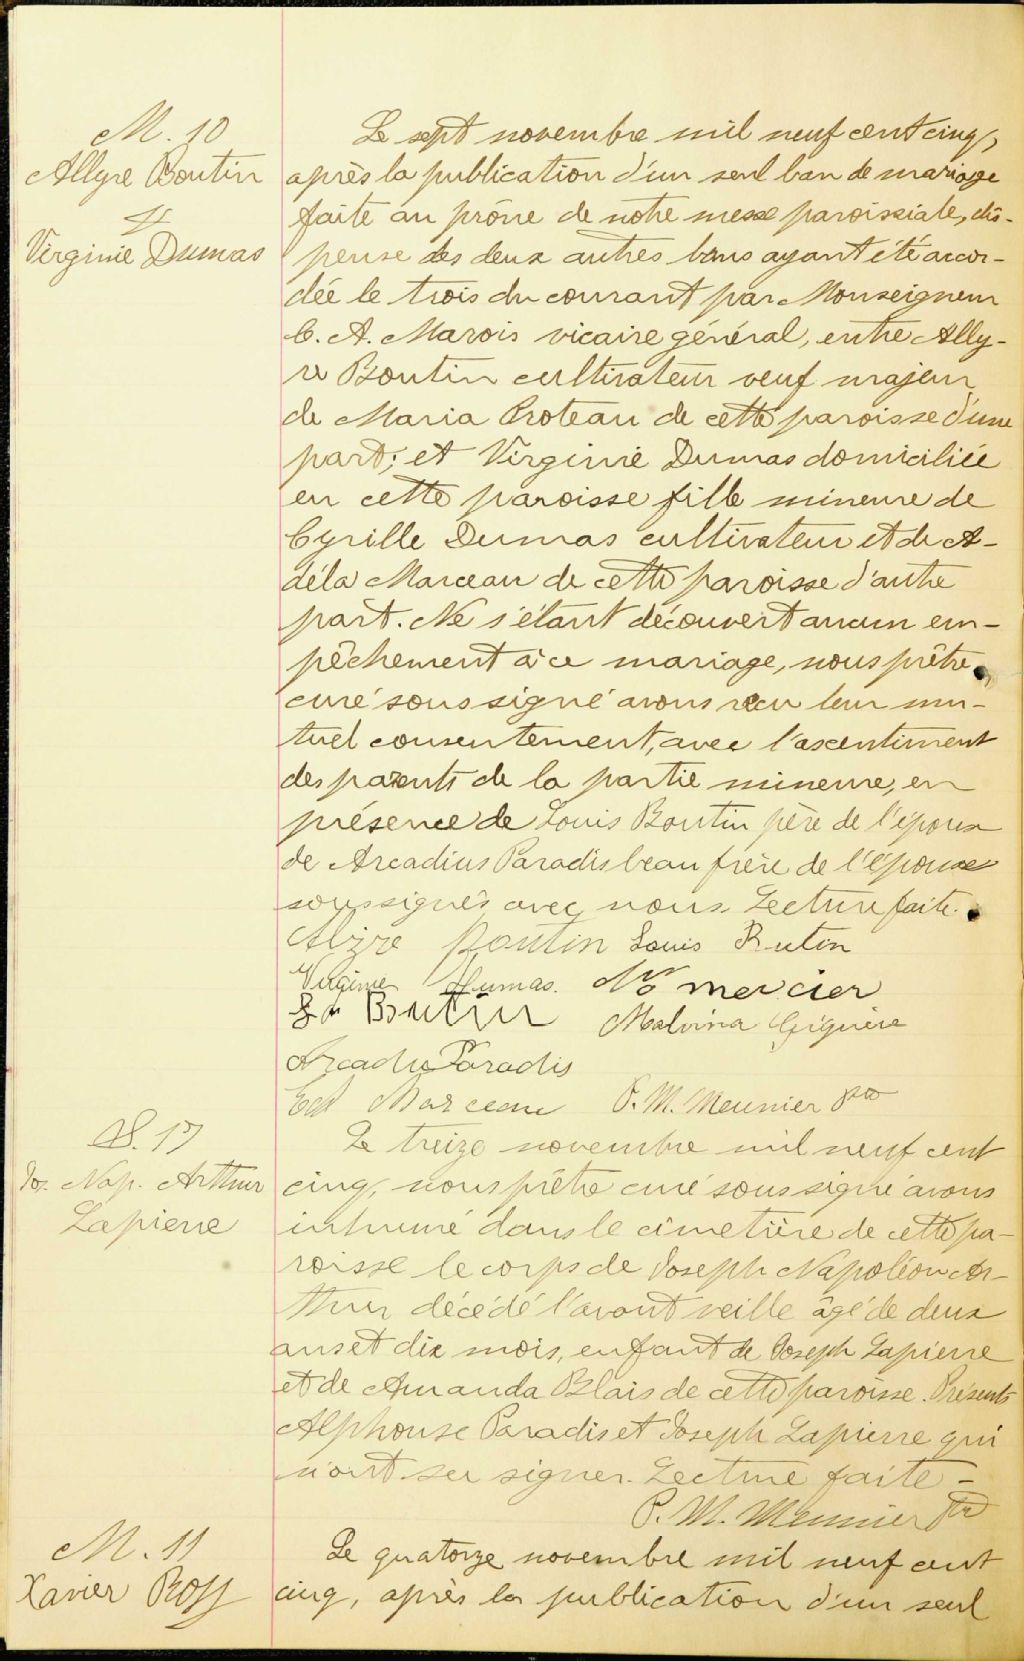 M. 10
Allyre Boutin
&
Virginie Dumas
Le sept novembre mil neuf cent cinq,
après la publication d'un seul ban de mariage
faite au prône de notre messe paroissiale, dis-
pense des deux autres bans ayant été accor-
dée le trois du courant par Monseigneur
C. A. Marois vicaire général, entre Ally-
re Boutin cultivateur veuf majeur
de Maria Croteau de cette paroisse d'une
part; et Virginie Dumas domiciliée
en cette paroisse fille mineure de
Cyrille Dumas cultivateur et de A-
déla Marceau de cette paroisse d'autre
part. Ne s'étant découvert aucun em-
pêchement à ce mariage, nous prêtre,
curé soussigné avons reçu leur mu-
tuel consentement, avec l'ascentiment
des parents de la partie mineure, en
présence de Louis Boutin père de l'époux
de Arcadius Paradis beau frère de l'épouse
soussignés avec nous. Lecture faite.
Alire Boutin Louis Butin
Virginie Dumas. Mercier
Boutin Malvina Giguère
Arcadius Paradis
Ed Marceau P. M. Meunier ptre
S. 17
Jos. Nap. Arthur
Lapierre
Le treize novembre mil neuf cent
cinq, nous prêtre curé soussigné avons
inhumé dans le cimetière de cette pa-
roisse le corps de Joseph Napoléon Ar-
thur décédé l'avant veille âgé de deux
ans et dix mois, enfant de Joseph Lapierre
et de Amanda Blais de cette paroisse. Présents
Alphonse Paradis et Joseph Lapierre qui
n'ont su signer. Lecture faite -
P. M. Meunier Ptre
M. 11
Xavier Ross
Le quatorze novembre mil neuf cent
cinq, après la publication d'un seul